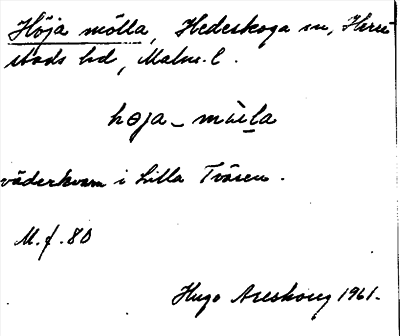 Höja mölla, Hedeskoga sn, Herre-
stads hd, Malm. l.
høja - mùlla
väderkvarn i Lilla Tvären.
M. f. 80
Hugo Areskoug 1961.